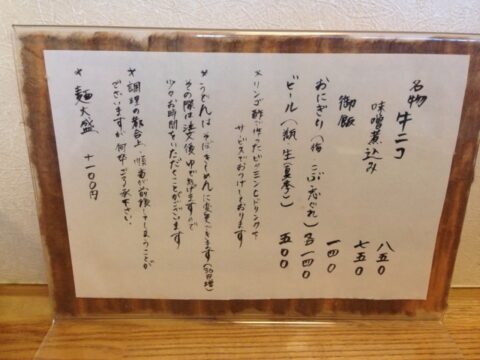 名物 牛ニコ 八五〇
味噌煮込み 七五〇
御飯 一四〇
おにぎり(梅 こぶ 志ぐれ)各一四〇
ビール(瓶、生(夏季)) 五〇〇
*リンゴ酢で作ったビタミンCドリンクを
サービスでおつけしております
*うどんは、そば、きしめんに変更できます(50円増)
その際は注文後ゆで上げますので
少々お時間をいただくことがございます
*調理の都合上、順番が前後してしまうことが
ございますが何卒ご了承下さい。
*麺大盛 +一〇〇円